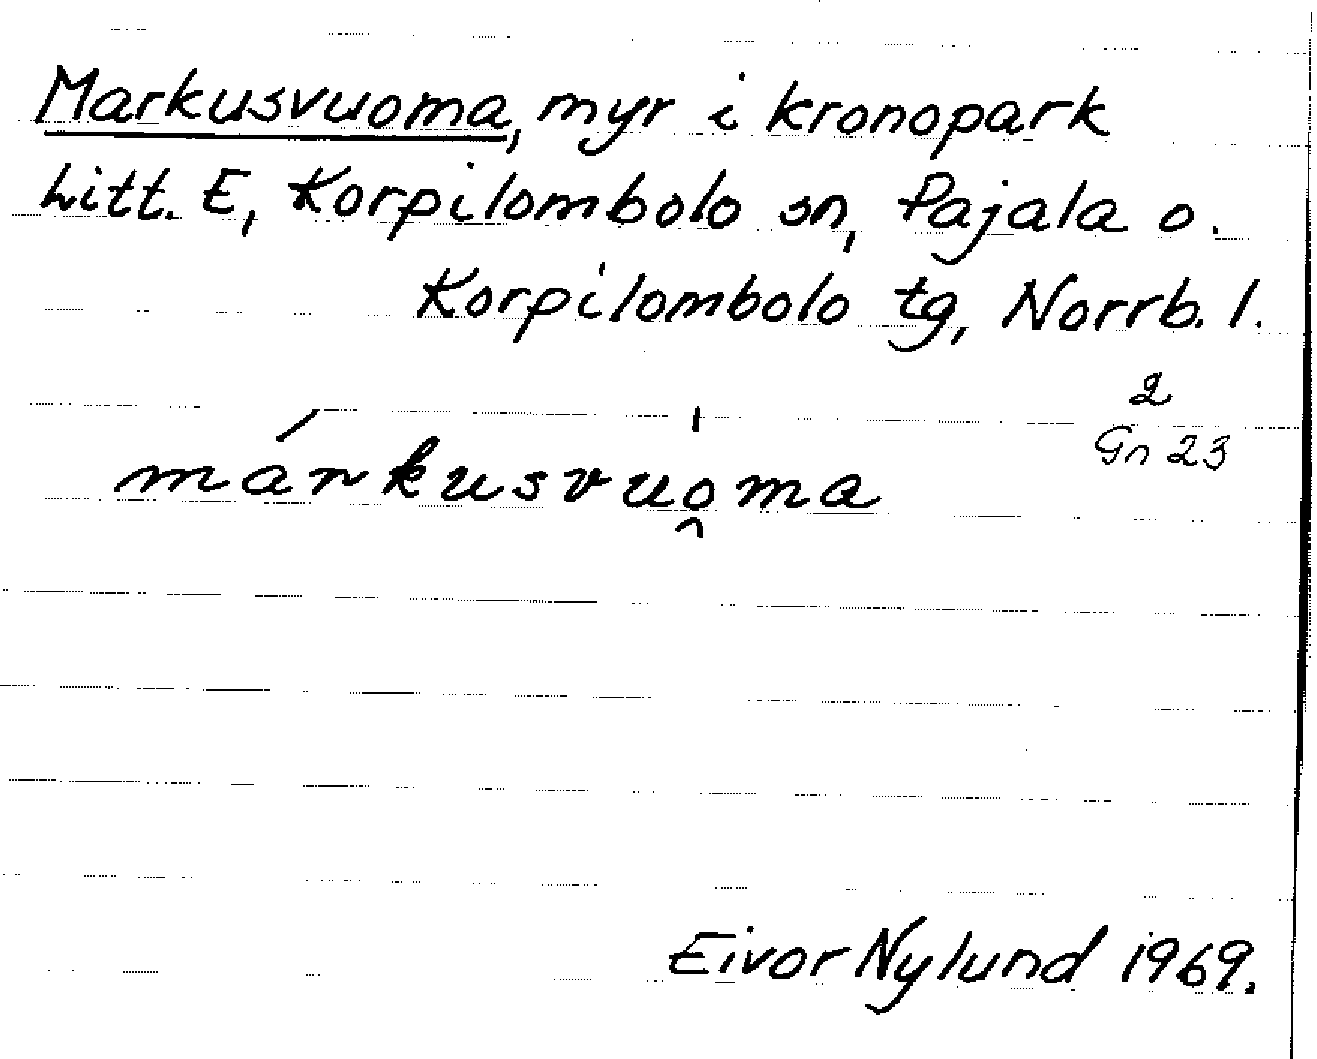 Markusvuoma, myr i kronopark
Litt. E, Korpilombolo sn, Pajala o.
Korpilombolo tg, Norrb. l.
2
Gn 23
márkusvuo̯̍ma
Eivor Nylund 1969.